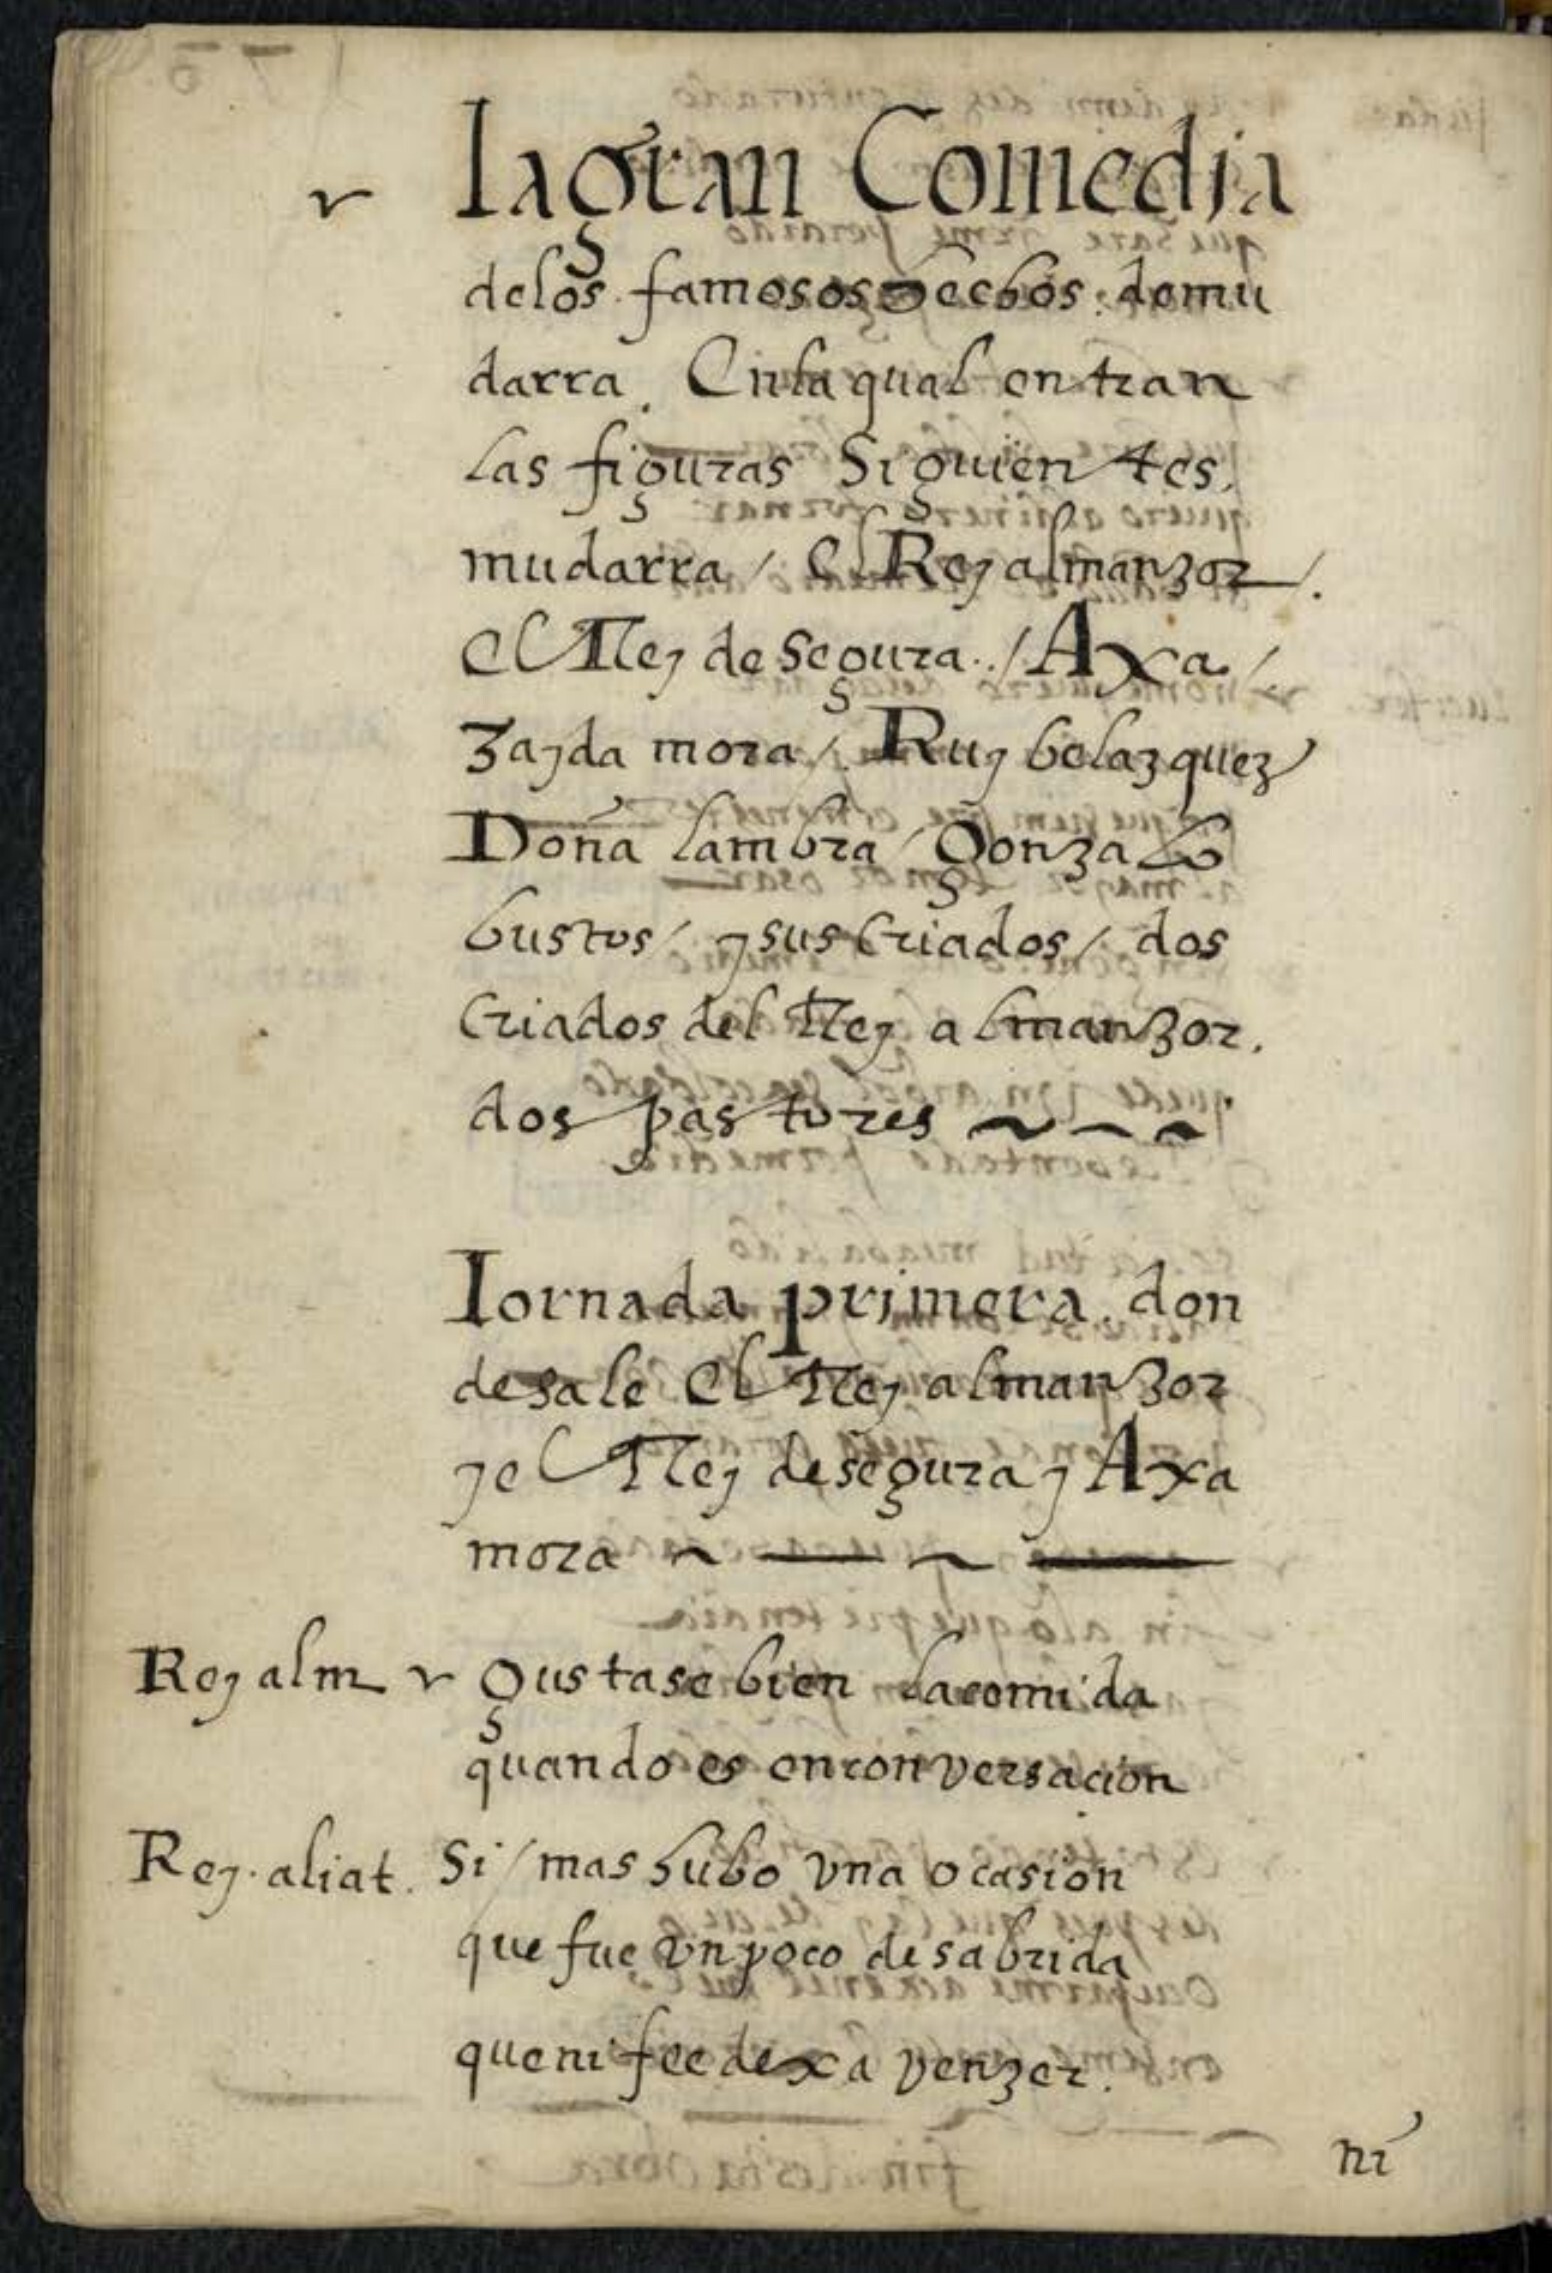 la gran Comedia
de los famosos hechos de mu
darra. En la qual entran
las figuras Siguientes.
mudarra / El Rey almanzor /.
El Rey de segura. / Axa /
Zayda mora /. Ruy belazquez
Doña lambra / Gonzalo
bustos / y sus Criados / dos
Criados del Rey almanzor.
dos pastores
Iornada primera. don
de sale El Rey almanzor
y el Rey de segura y Axa
mora
Rey alm gustase bien la comida
quando es en conversacion
Rey. aliat. Si / mas hubo vna ocasion
que fue vn poco desabrida
que ni fee dexa venzer.
ni